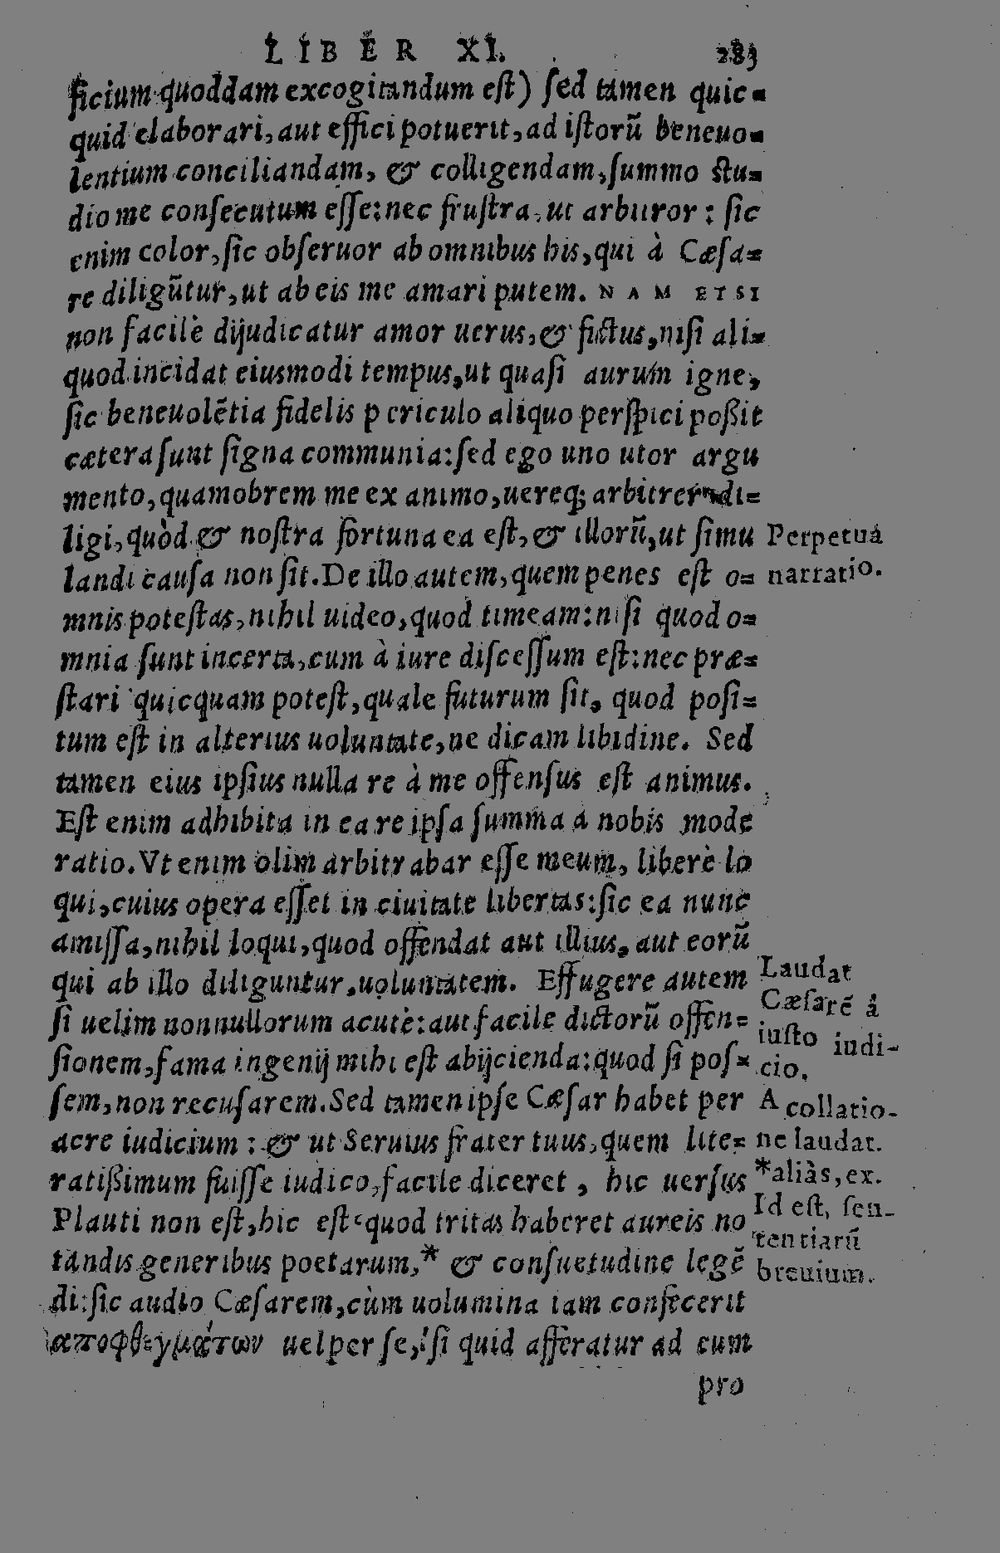 LIBER XI. 283
ficium quoddam excogitandum est) sed tamen quic=
quid elaborari, aut effici potuerit, ad istorũ beneuo=
lentium conciliandam, & colligendam, summo stu=
dio me consecutum esse: nec frustra, ut arbitror: sic
enim color, sic obseruor ab omnibus his, qui à Cæsa=
re diligũtur, ut ab eis me amari putem. NAM ETSI
non facilè dijudicatur amor uerus, & fictus, nisi ali=
quod incidat eiusmodi tempus, ut quasi aurum igne,
sic beneuolẽtia fidelis periculo aliquo perspici poßit
cætera sunt signa communia: sed ego uno utor argu
mento, quamobrem me ex animo, uereq; arbitrer di=
ligi, quòd & nostra fortuna ea est, & illorũ, ut simu
Perpetua
landi causa non sit. De illo autem, quem penes est o=
narratio.
mnis potestas, nihil uideo, quod timeam: nisi quod o=
mnia sunt incerta, cum à iure discessum est: nec præ=
stari quicquam potest, quale futurum sit, quod posi=
tum est in alterius uoluntate, ne dicam libidine. Sed
tamen eius ipsius nulla re à me offensus est animus.
Est enim adhibita in ea re ipsa summa à nobis mode
ratio. Vt enim olim arbitrabar esse meum, liberè lo
qui, cuius opera esset in ciuitate libertas: sic ea nunc
amissa, nihil loqui, quod offendat aut illius, aut eorũ
qui ab illo diliguntur, uoluntatem. Effugere autem
Laudat
si uelim nonnullorum acutè: aut facile dictorũ offen=
Cæsarẽ à
iusto iudi-
sionem, fama ingenij mihi est abijcienda: quod si pos=
cio.
sem, non recusarem. Sed tamen ipse Cæsar habet per
A collatio-
acre iudicium: & ut Seruius frater tuus, quem lite=
ne laudat.
ratißimum fuisse iudico, facile diceret, hic uersus
*aliàs, ex.
Plauti non est, hic est: quod tritas haberet aureis no
Id est, sen-
tentiarũ
tandis generibus poetarum,* & consuetudine legẽ
breuium.
di: sic audio Cæsarem, cùm uolumina iam confecerit
ἀποφθεγμάτων uel per se, si quid afferatur ad eum
pro